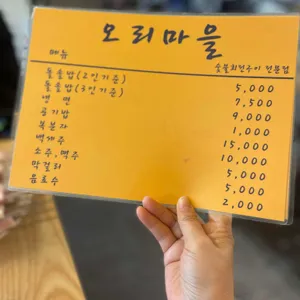 오리마을
메뉴 숯불회전구이 전문점
돌솥밥(2인기준) 5,000
돌솥밥(3인기준) 7,500
냉면 9,000
공기밥 1,000
복분자 15,000
백세주 10,000
소주,맥주 5,000
막걸리 5,000
음료수 2,000